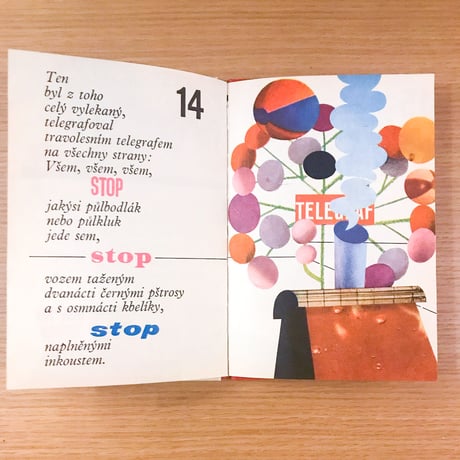 Ten
byl z toho
celý vylekaný,
telegrafoval
travolesním telegrafem
na všechny strany:
Všem, všem, všem,
STOP
jakýsi půlbodlák
nebo půlkluk
jede sem,
stop
vozem taženým
dvanácti černými pštrosy
a s osmnácti kbelíky,
stop
naplněnými
inkoustem.
14
TELEGRAF